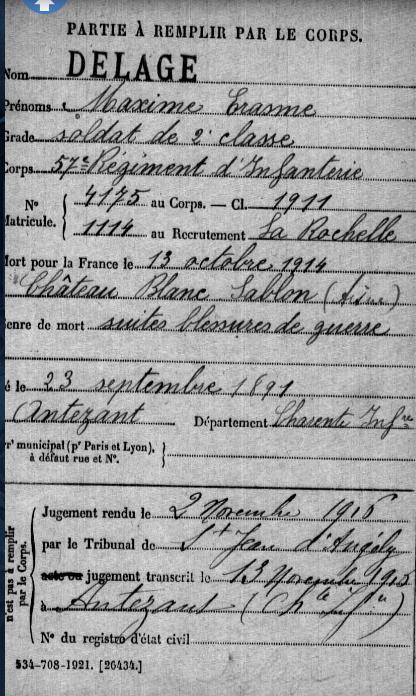 PARTIE À REMPLIR PAR LE CORPS.
Nom DELAGE
Prénoms Maxime Erasme
Grade soldat de 2e classe
Corps 57e Régiment d'Infanterie
N° Matricule. { 4175 au Corps. — Cl. 1911
1114 au Recrutement La Rochelle
Mort pour la France le 13 octobre 1914
à Château Blanc Sablon (Aisne)
Genre de mort suites blessures de guerre
Né le 23 septembre 1891
Antezant Département Charente Infre
Arrt municipal (pr Paris et Lyon), à défaut rue et N°. }
n'est pas à remplir par le Corps.
Jugement rendu le 2 Novembre 1915
par le Tribunal de St Jean d'Angély
acte ou jugement transcrit le 13 Novembre 1915
à Antezant (Chte Infre)
N° du registre d'état civil
534-708-1921. [26434.]